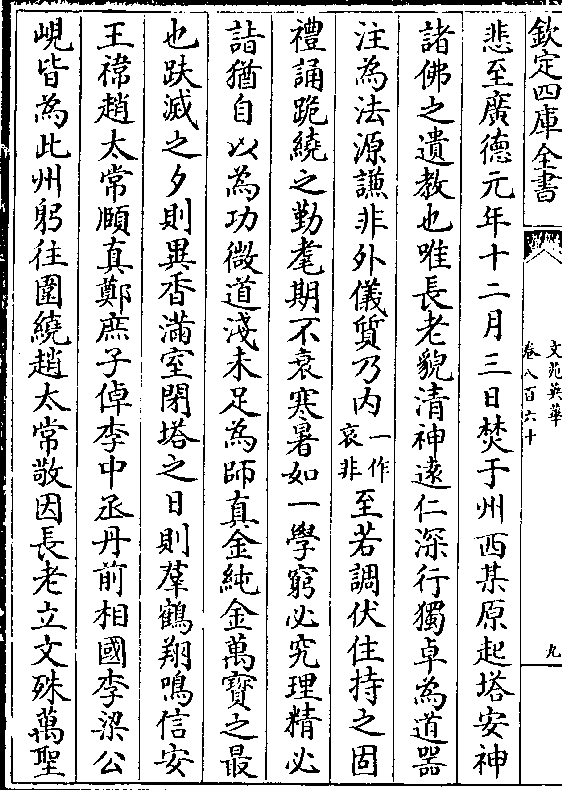 欽定四庫全書
文苑英華
卷八百六十
九
悲至廣德元年十二月三日焚于州西某原起塔安神
諸佛之遺教也唯長老貌清神遠仁深行獨卓為道器
注為法源謙非外儀質乃内一作衷非至若調伏住持之固
禮誦跪繞之勤耄期不衰寒暑如一學窮必究理精必
詣猶自以為功微道淺未足為師真金純金萬寶之最
也趺滅之夕則異香滿室閉塔之日則羣鶴翔鳴信安
王禕趙太常頤真鄭庶子倬李中丞丹前相國李梁公
峴皆為此州躬往圍繞趙太常敬因長老立文殊萬聖